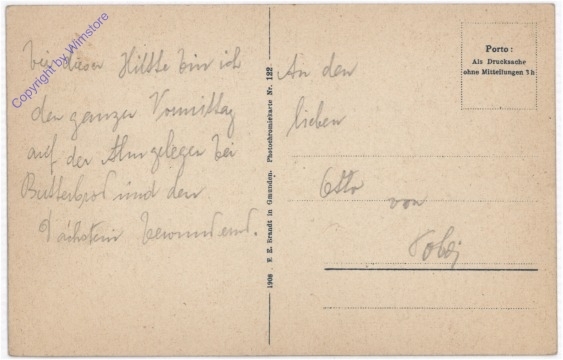 bei dieser Hütte bin ich
den ganzen Vormittag
auf der Alm gelegen bei
Butterbrod und den
Dachstein bewundernd.
An den
lieben
Otto
von
Porto:
Als Drucksache
ohne Mitteilungen 3 h
1908 F. E. Brandt in Gmunden. Photochromiekarte Nr. 122.
Copyright by Wimstore